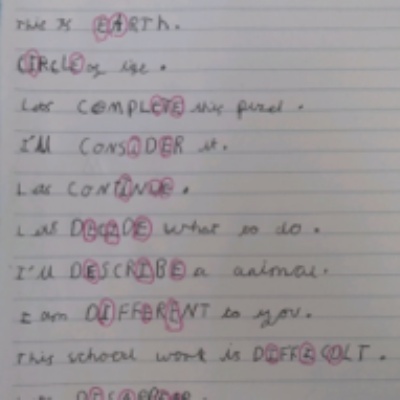 This is EARTH.
CIRCLE of life.
Lets COMPLETE this
I'll CONSIDER it.
Lets CONTINUE.
Lets DECIDE what to do.
I'll DESCRIBE a animal.
I am DIFFERENT to you.
This school work is DIFFICULT.
DISAPPEAR